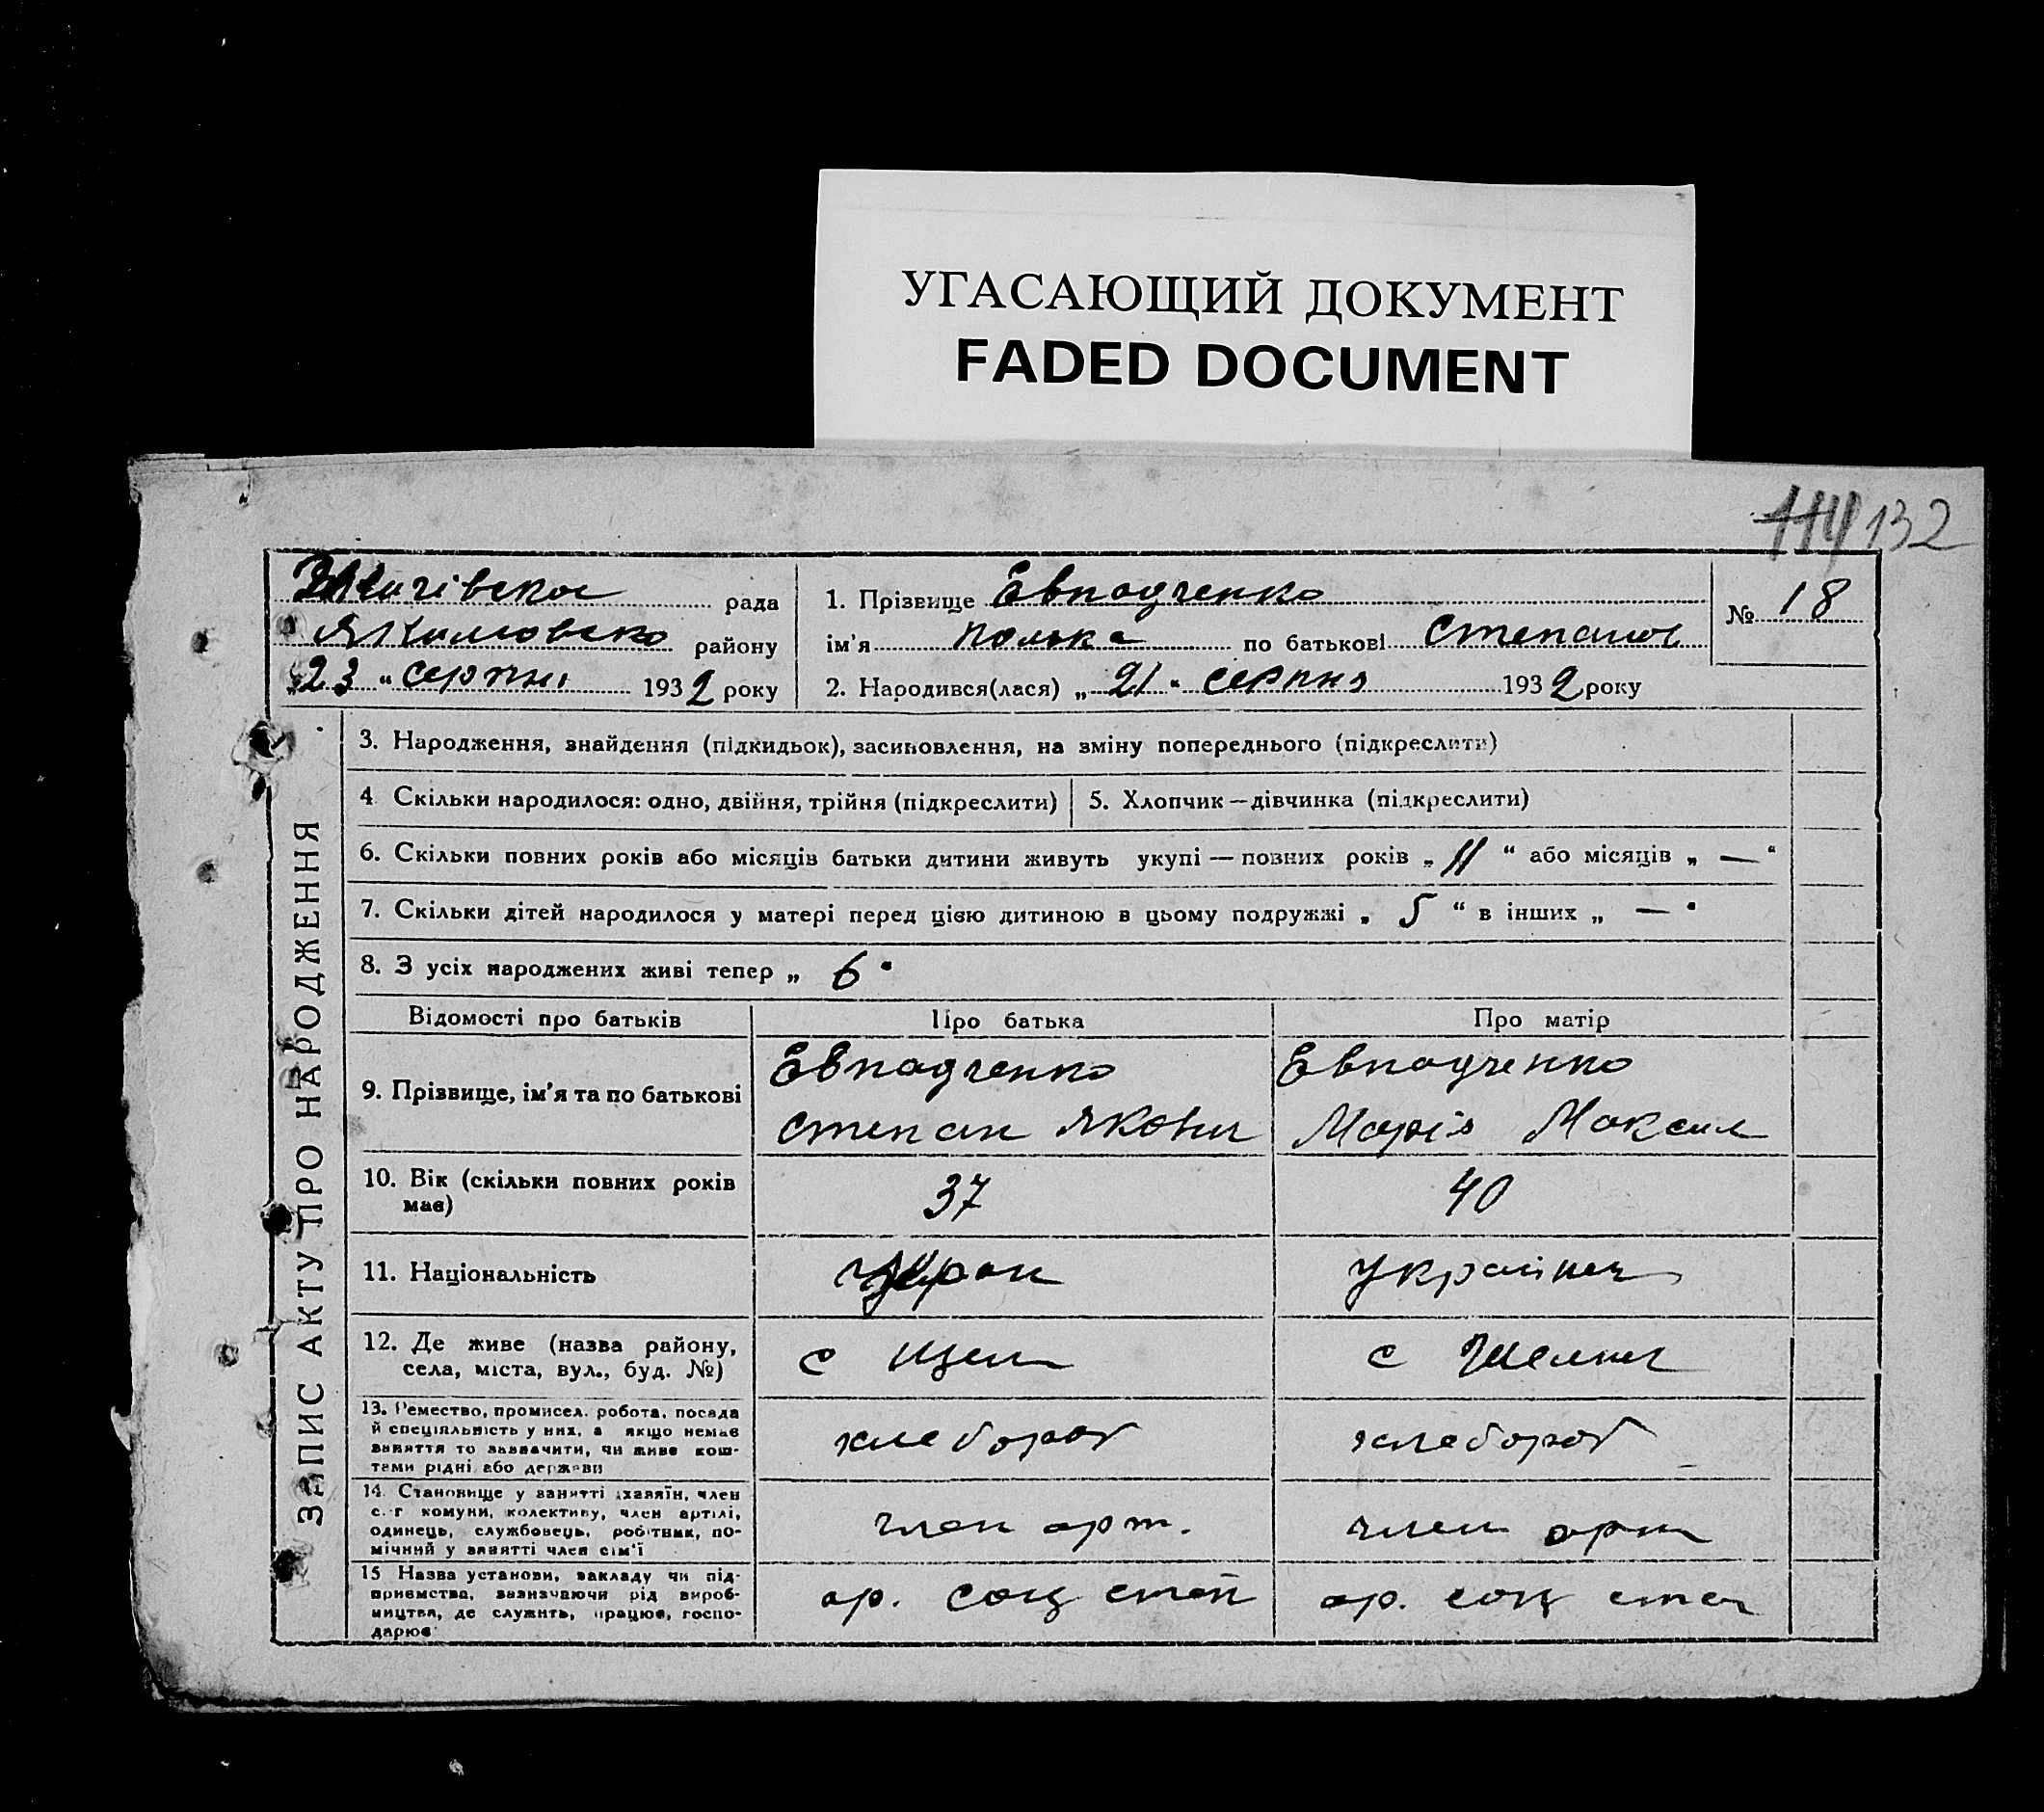 УГАСАЮЩИЙ ДОКУМЕНТ
FADED DOCUMENT
114 132
рада
району
„23 “ серпня 1932 року
1. Прізвище Евпадченко
ім'я по батькові Степанов
№ 18
2. Народився(лася) „ 21 “ серпня 1932 року
ЗАПИС АКТУ ПРО НАРОДЖЕННЯ
3. Народження, знайдення (підкидьок), засиновлення, на зміну попереднього (підкреслити)
4. Скільки народилося: одно, двійня, трійня (підкреслити)
5. Хлопчик — дівчинка (підкреслити)
6. Скільки повних років або місяців батьки дитини живуть укупі — повних років „ 11 “ або місяців „ — “
7. Скільки дітей народилося у матері перед цією дитиною в цьому подружжі „ 5 “ в інших „ — “
8. З усіх народжених живі тепер „ 6 “
Відомості про батьків
Про батька
Про матір
9. Прізвище, ім'я та по батькові
Евпадченко
Степан Яков
Евпадченко
Марія Максим
10. Вік (скільки повних років
має)
37
40
11. Національність
12. Де живе (назва району,
села, міста, вул., буд. №)
с
с
13. Ремество, промисел, робота, посада
й спеціяльність у них, а якщо немає
заняття то зазначити, чи живе кош-
тами рідні або держави
хлебороб
хлебороб
14. Становище у занятті: хазяїн, член
с.-г комуни, колективу, член артілі,
одинець, службовець, робітник, по-
мічний у занятті член сім'ї
член арт.
член арт
15 Назва установи, закладу чи під-
приємства, зазначаючи рід вироб-
ництва, де служить, працює, госпо-
дарює
ар. соц степ
ар. соц степ